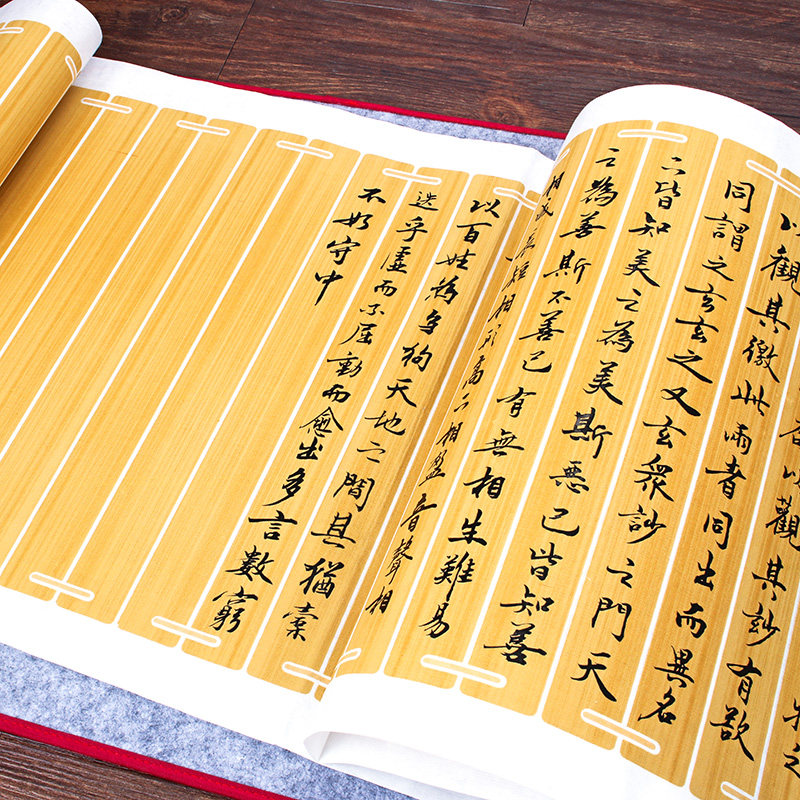 物之
以觀其妙有欲
以觀其徼此兩者同出而異名
同謂之玄玄之又玄眾妙之門天
下皆知美之為美斯惡已皆知善
之為善斯不善已有無相生難易
相短相形高下相盈音聲相
以百姓為芻狗天地之間其猶橐
乎虛而不屈動而愈出多言數窮
不如守中